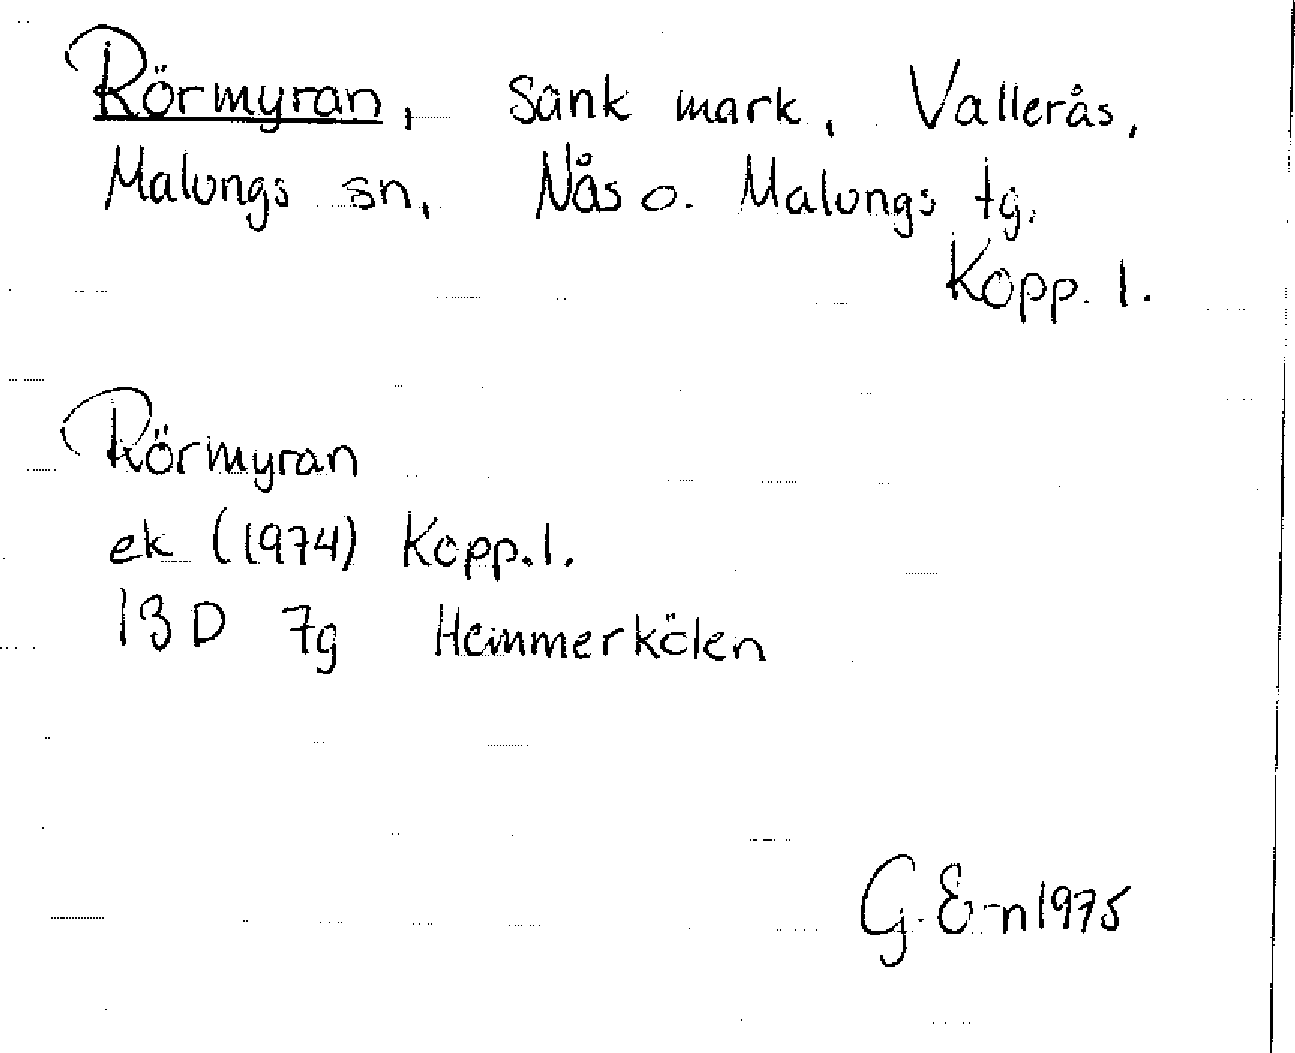 Rörmyran, Sänk mark, Vallerås,
Malungs sn, Nås o. Malungs tg.
Kopp. l.
Rörmyran
ek (1974) Kopp. l.
13 D 7g Hemmerkölen
G. E-n 1975